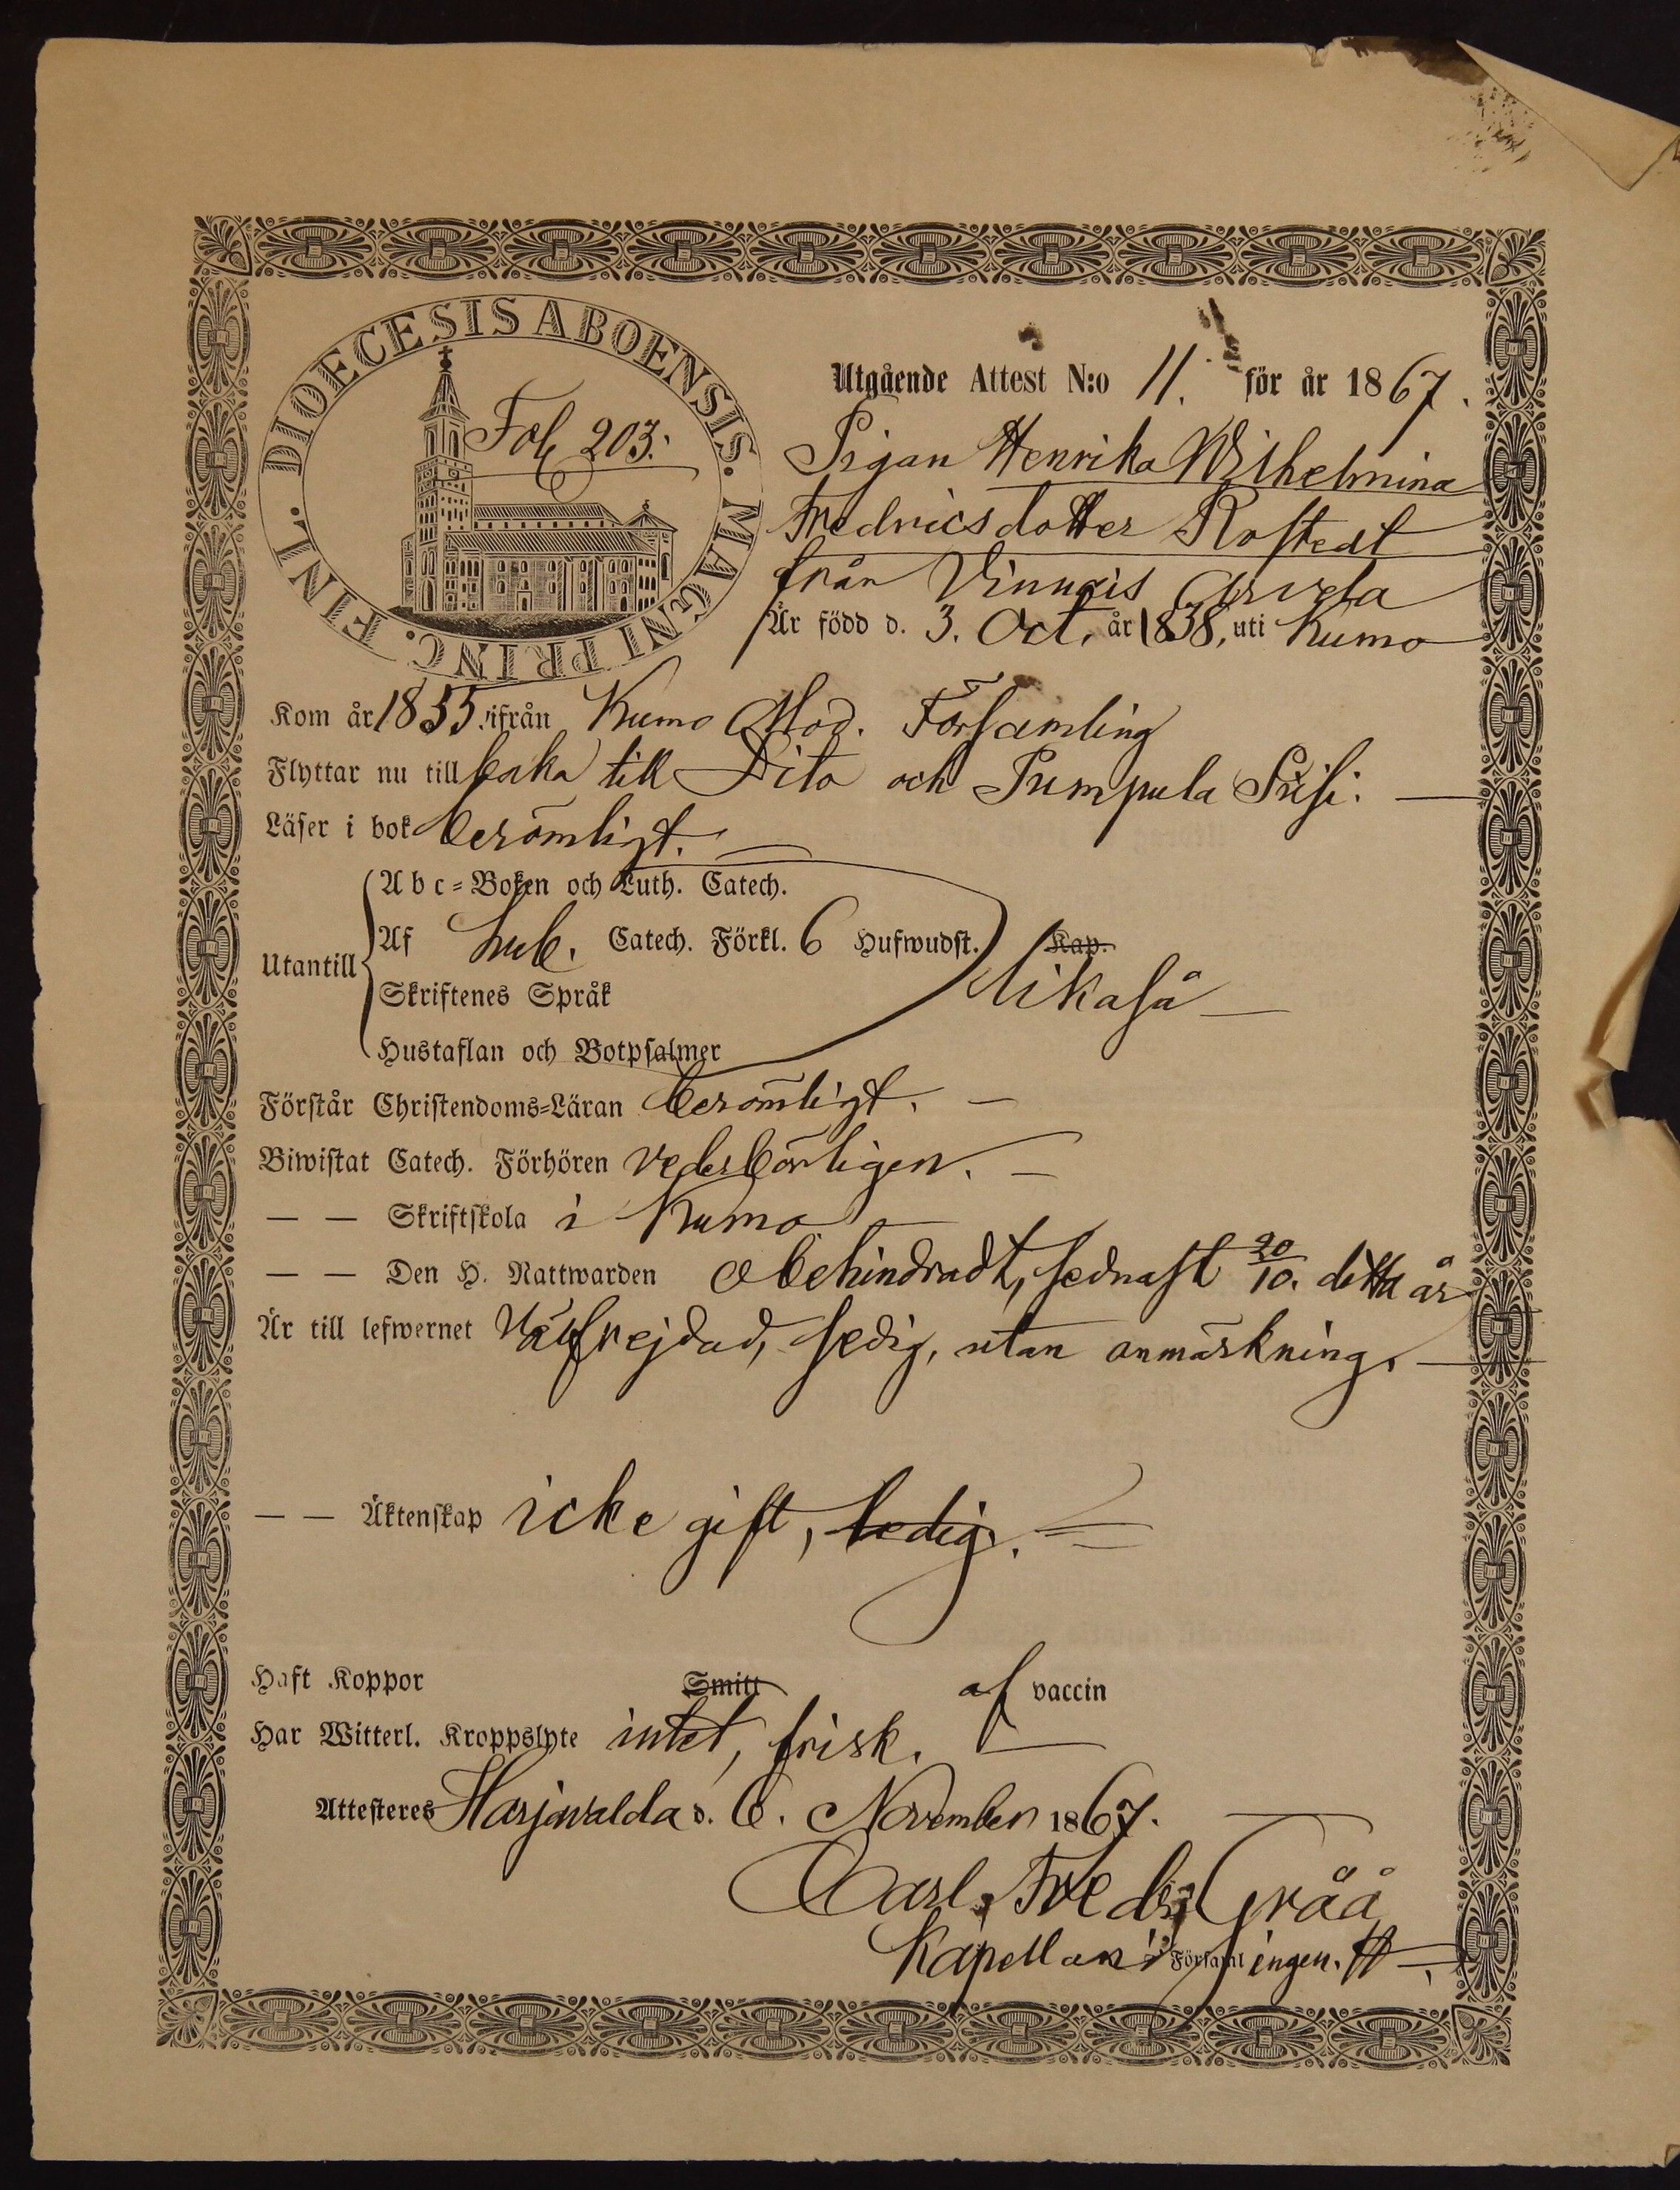 DIOECESIS ABOENSIS. MAGNI PRINC. FINL.
Fol 203.
Utgående Attest N:o 11. för år 1867.
Pigan Henrika Wilhelmina
Fredricsdotter Rostedt
från Vinnais Arvela
Är född d. 3. Oct. år 1838, uti Kumo
Kom år 1855 ifrån Kumo Mod. Församling
Flyttar nu till baka till Dito och Pumpula
Läser i bok berömligt.
Abc-Boken och Luth. Catech.
Utantill Af Catech. Förkl. 6 Hufwudst. Kap.
likaså
Skriftenes Språk
Hustaflan och Botpsalmer
Förstår Christendoms-Läran berömligt.
Biwistat Catech. Förhören vederbörligen.
— — Skriftskola i Kumo
— — Den H. Nattwarden obehindradt, sednast 20/10. detta år
Är till lefwernet Välfrejdad, sedig, utan anmärkning.
— — Äktenskap icke gift, ledig.
Haft Koppor Smitt af vaccin
Har Witterl. Kroppslyte intet, frisk.
Attesteres Harjavalda d. 6. November 1867.
Carl Fredr Gråå
Kapellan i Församlingen.